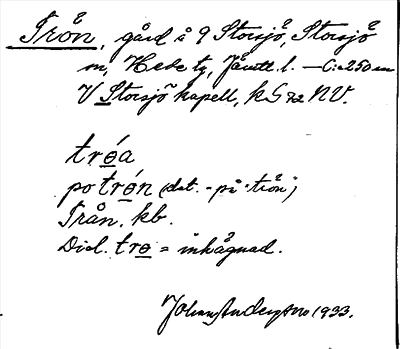 Trön, gård å 9 Storsjö, Storsjö
sn, Hede tg, Jämtl. l. – C:a 250 m
V Storsjö kapell, k G 72 NV.
tróa
po trón (dat. - på "trön")
Trån. kb.
Dial. tro = inhägnad.
1933.